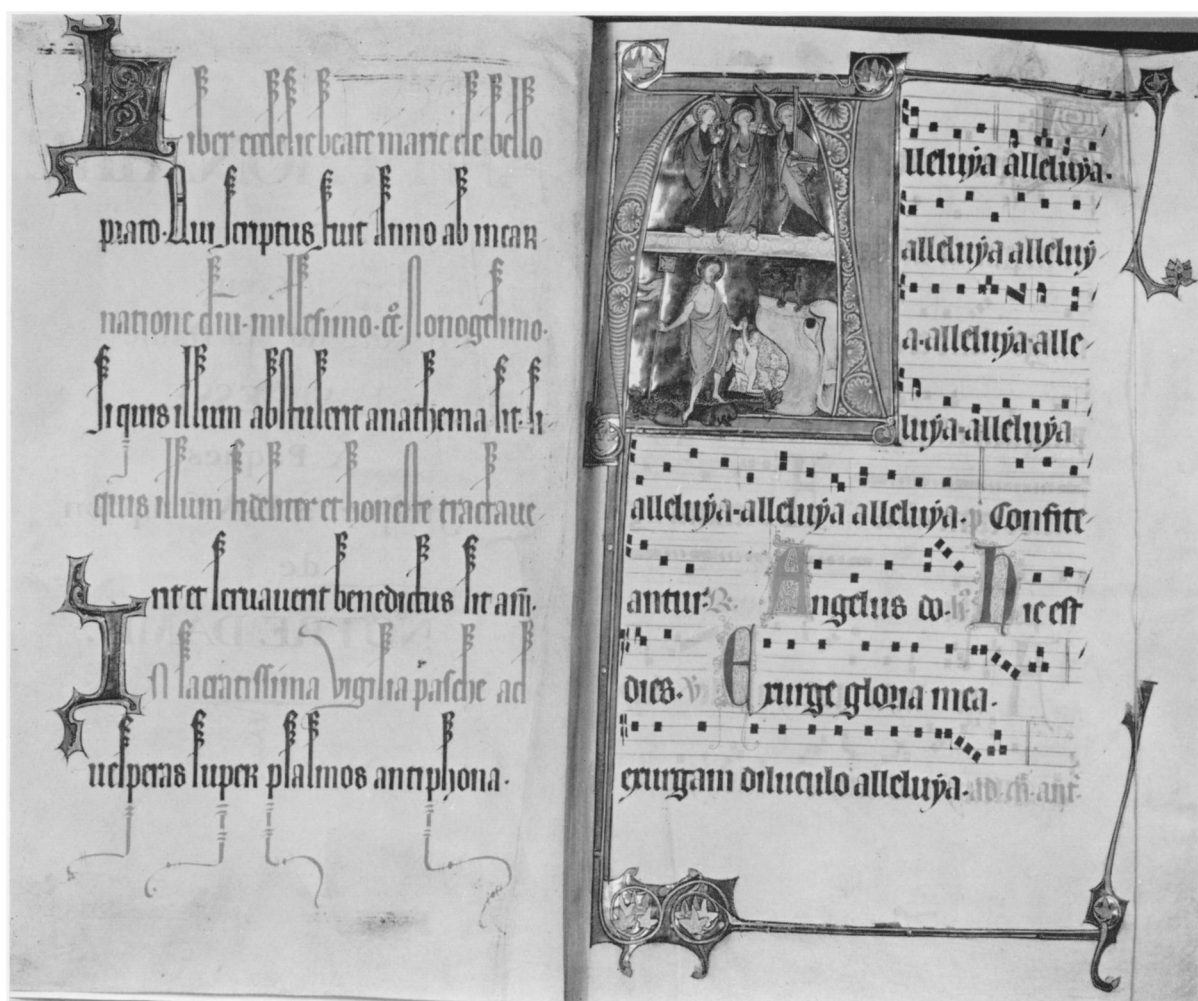 Liber ecclesie beate marie de bello
prato. Qui scriptus fuit Anno ab incar
natione dni. millesimo. cc. Nonogesimo.
si quis illum abstulerit anathema sit. si
quis illum fideliter et honeste tractave
rit et servaverit benedictus sit am.
IN sacratissima vigilia pasche ad
vesperas super psalmos antiphona.
Alleluya alleluya.
alleluya alleluy
a. alleluya alle
luya. alleluya
alleluya. alleluya alleluya. p Confite
antur. Angelus do. Hic est
dies. Exurge gloria mea.
exurgam diluculo alleluya. ad